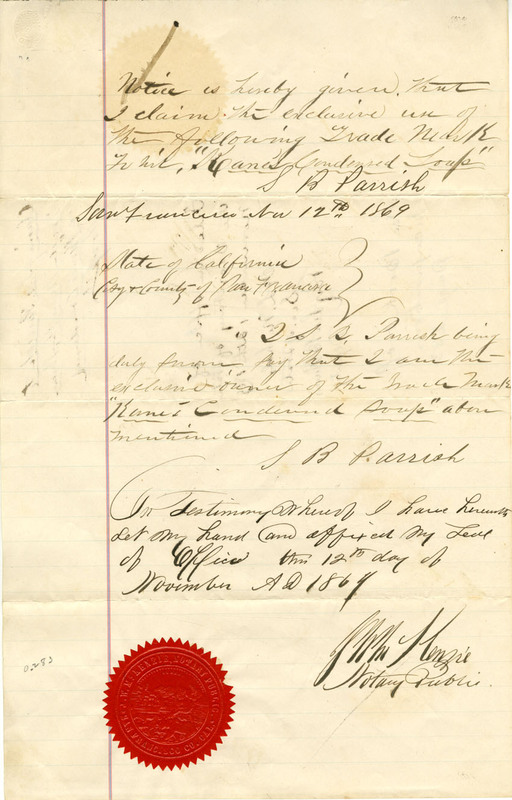 Notice is hereby given that
I claim the exclusive use of
the following Trade Mark
To wit, "Kane's Condensed Soap"
S B Parrish
San Francisco Nov 12th 1869
State of California
City & County of San Francisco
I S. B. Parrish being
duly sworn say that I am the
exclusive owner of the Trade Mark
"Kane's Condensed Soap" above
mentioned
S B Parrish
In Testimony Whereof I have hereunto
set my hand and affixed my Seal
of Office this 12th day of
November AD 1869
McKenzie
Notary Public.
KENZIE, NOTARY PUBLIC
SAN FRANCISCO CO. CAL.